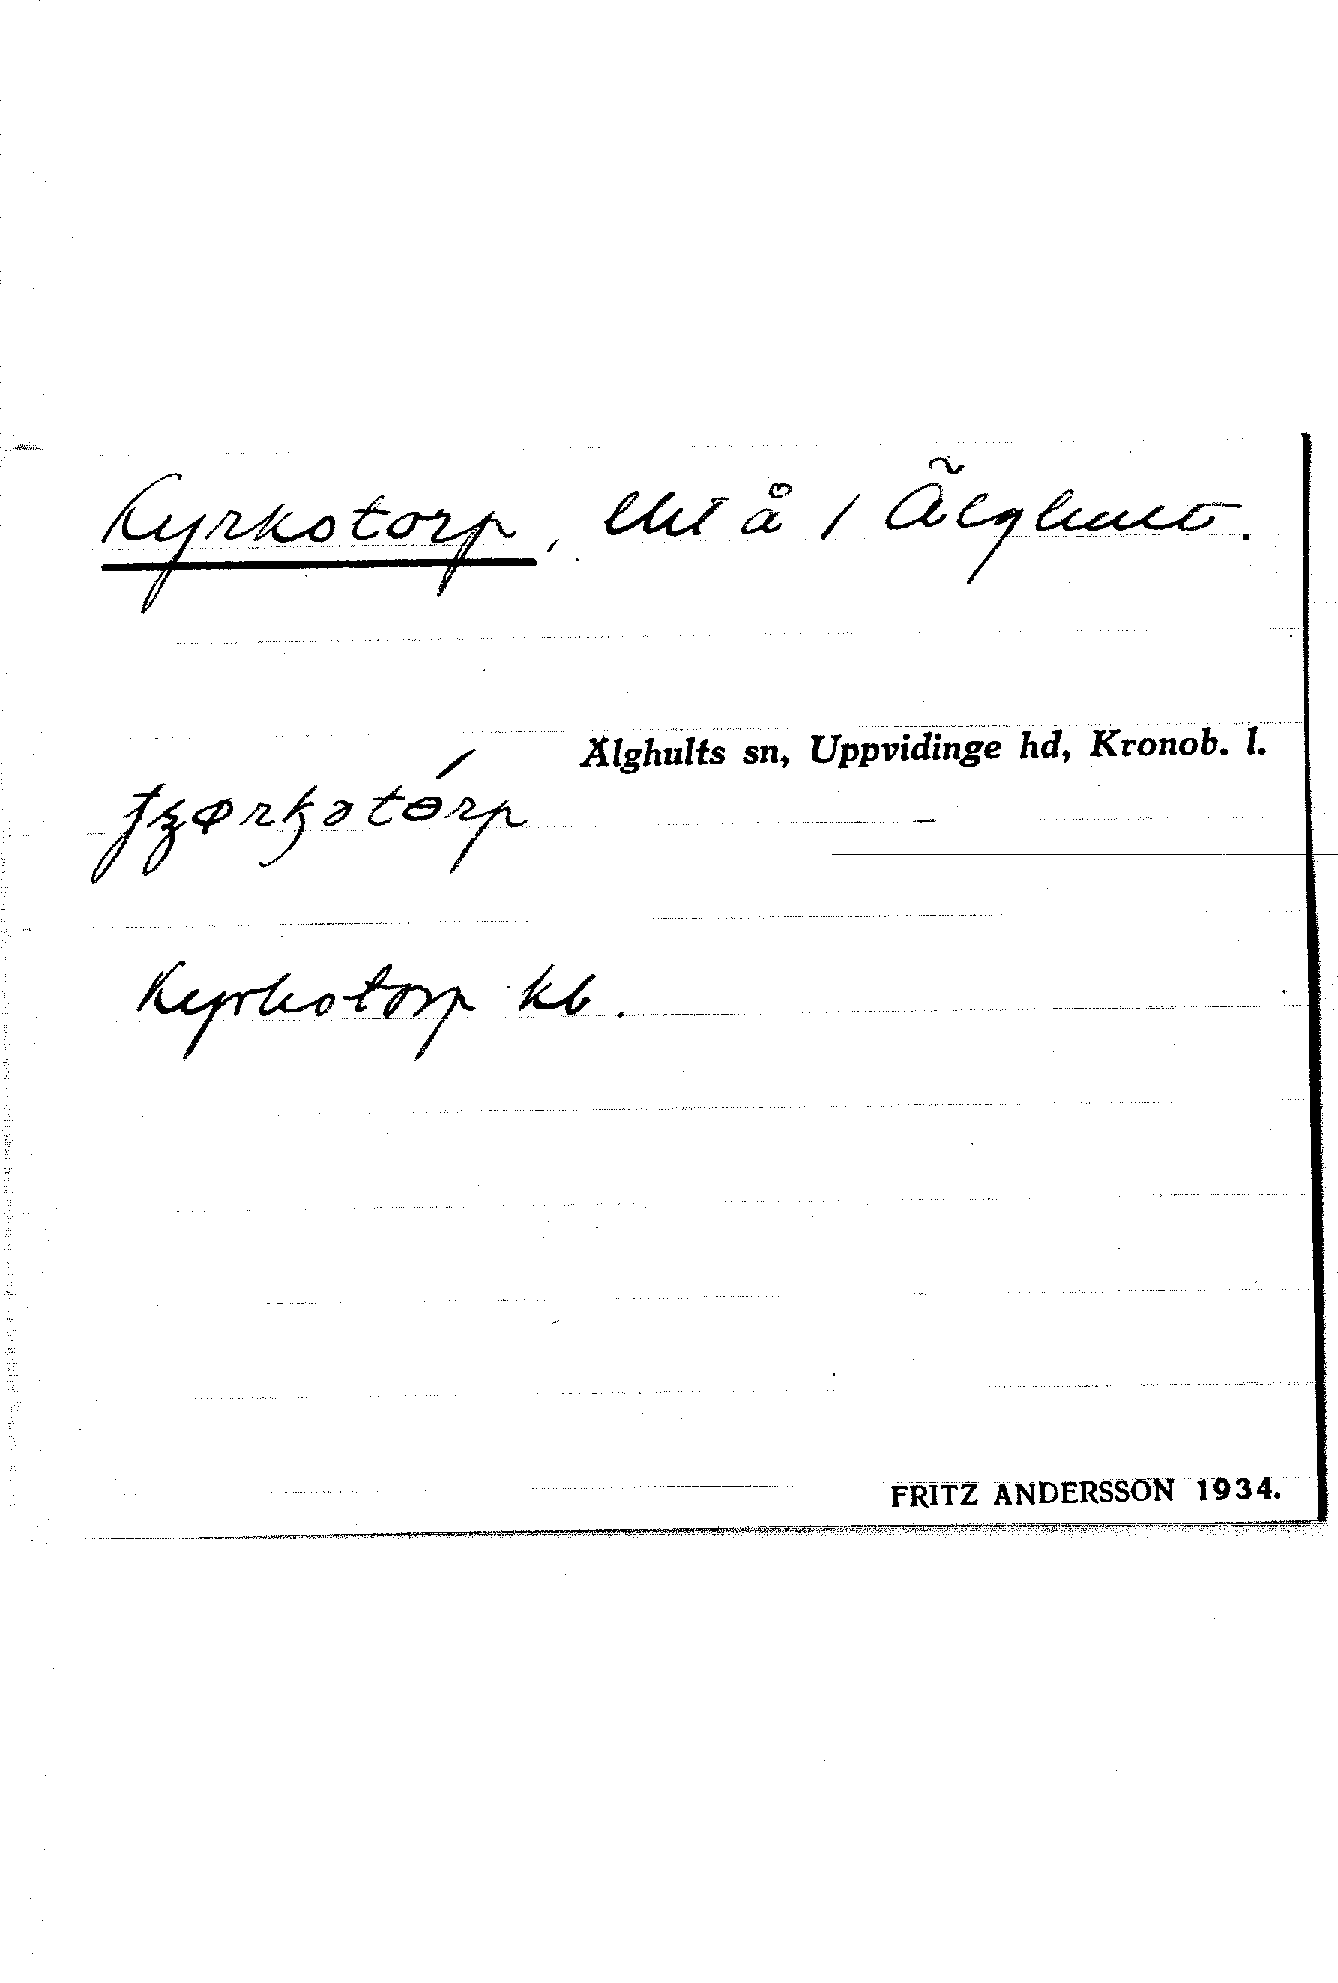 Kyrkotorp, lht å / Älghult.
Älghults sn, Uppvidinge hd, Kronob. l.
Kyrkotorp kb.
FRITZ ANDERSSON 1934.